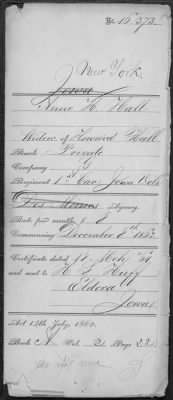 No. 15,573
New York,
Iowa
Anne H. Hall
Widow of Howard Hall
Rank Private
Company G
Regiment 1st Cav. Iowa Vols
Des Moines Agency.
Rate per month, $ 8
Commencing December 8th 1862
Certificate dated 11 Mch '64
and sent to H. L. Huff
Eldora
Iowa
Act 14th July, 1862.
Book A Vol. 2 Page 22